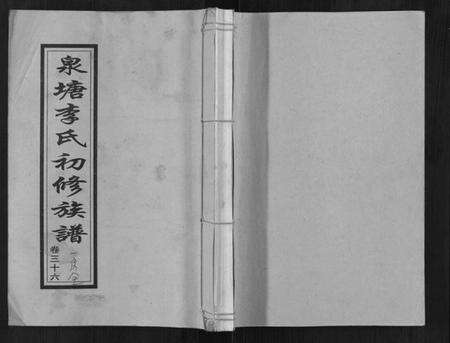 泉塘李氏初修族譜
卷三十六